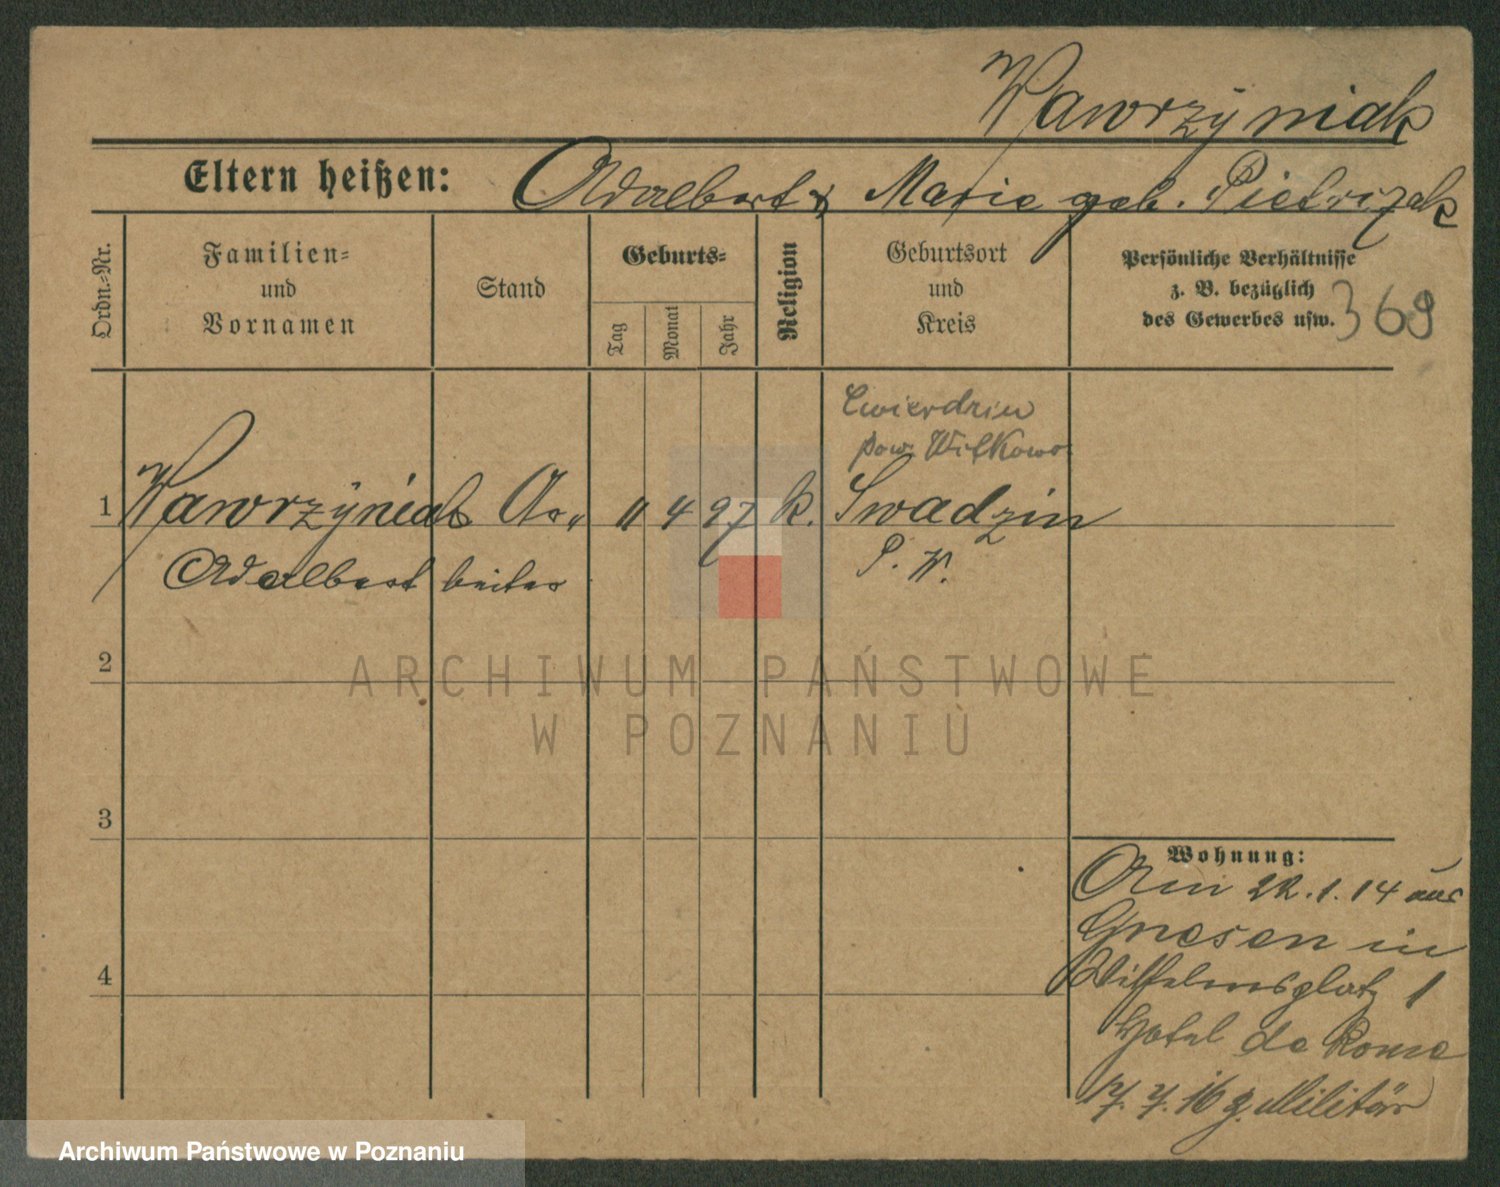 Wawrzyniak
Eltern heißen: Adalbert & Marie geb. Pietrzak
Ordn.=Nr.
Familien=
und
Vornamen
Stand
Geburts=
Tag
Monat
Jahr
Religion
Geburtsort
und
Kreis
Persönliche Verhältnisse
z. B. bezüglich
des Gewerbes usw.
369
Cwierdzin
pow. Witkowo
1 Wawrzyniak Ar= 11 4 97 k. Swadzin
Adalbert beiter P. W.
2
3
4
Wohnung:
Am 22.1.14 aus
Gnesen in
Wilhelmsplatz 1
Hotel de Rome
17. 7. 16 z. Militär
ARCHIWUM PAŃSTWOWE
W POZNANIU
Archiwum Państwowe w Poznaniu